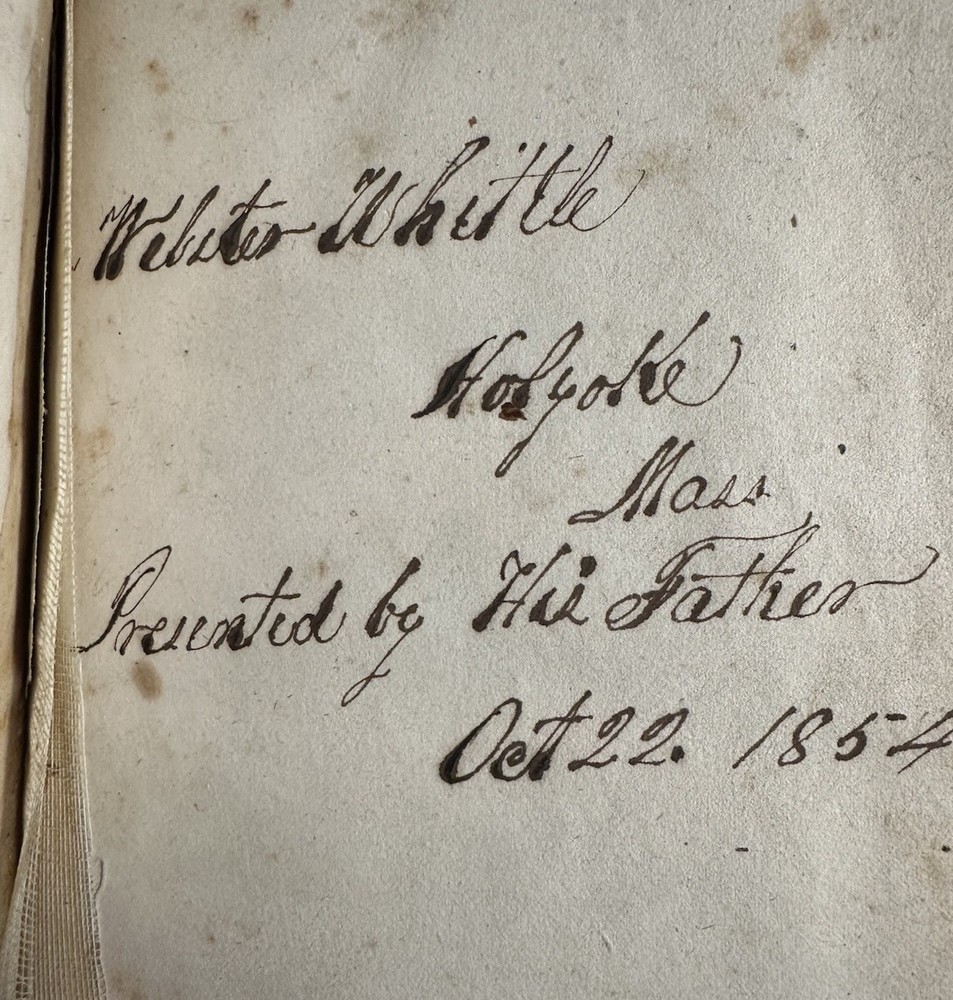 Webster Whittle
Holyoke
Mass
Presented by His Father
Oct 22. 1854